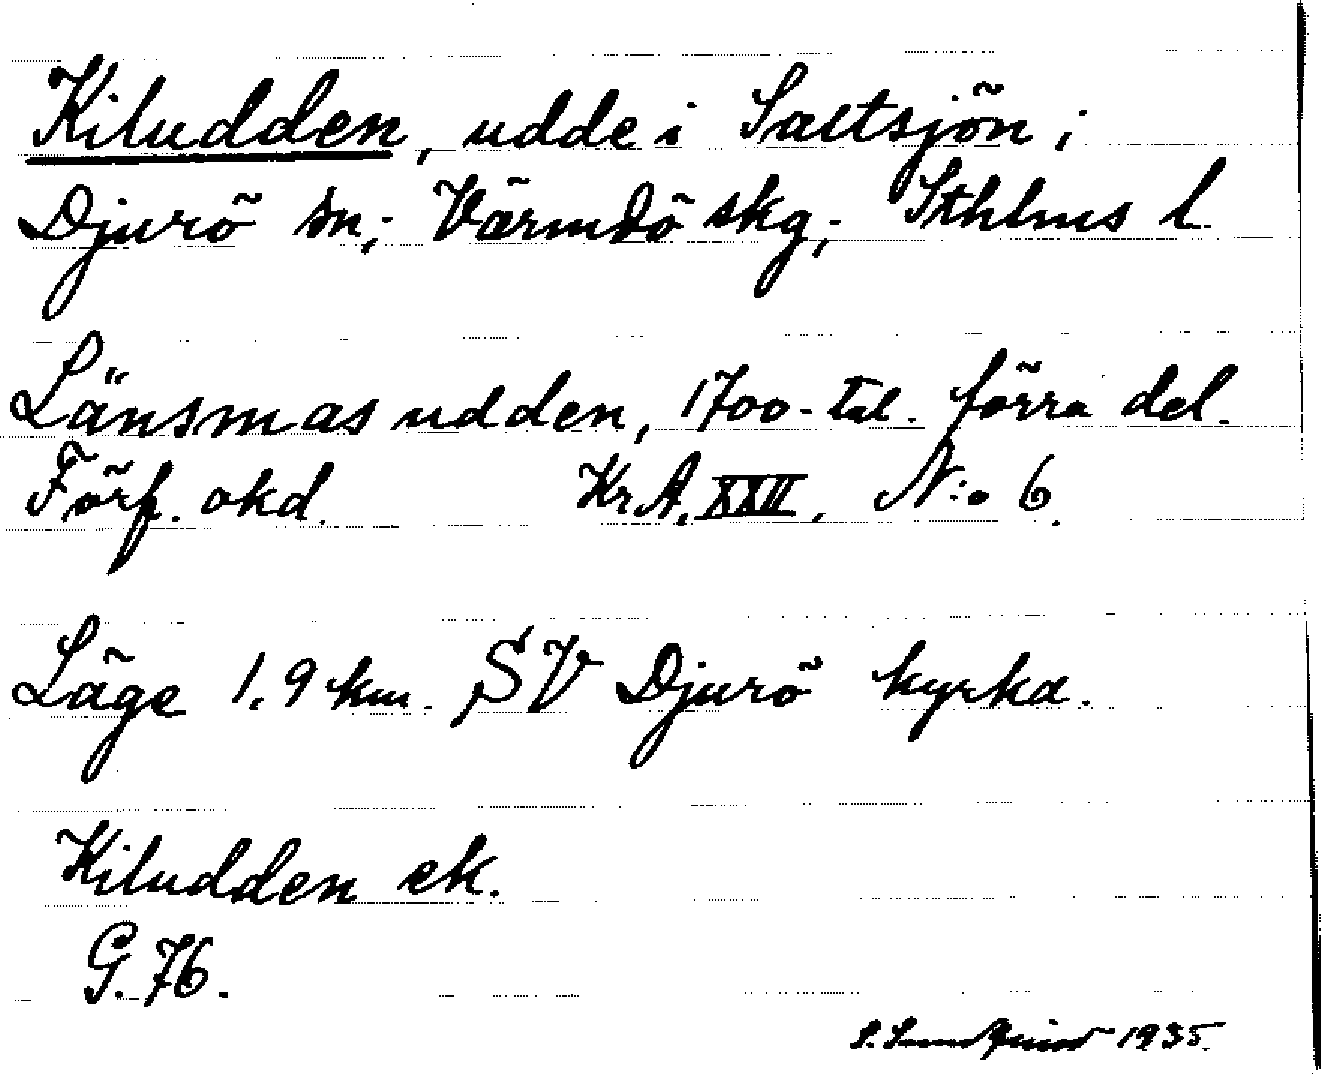 Kiludden, udde i Saltsjön i
Djurö sn; Värmdö skg; Sthlms l
Länsmas udden, 1700-tal. förra del.
Förf. okd. Kr.A. XXII, N:o 6.
Läge 1.9 km. SV Djurö kyrka.
Kiludden ek.
G. 76.
S. Sundqvist 1935.